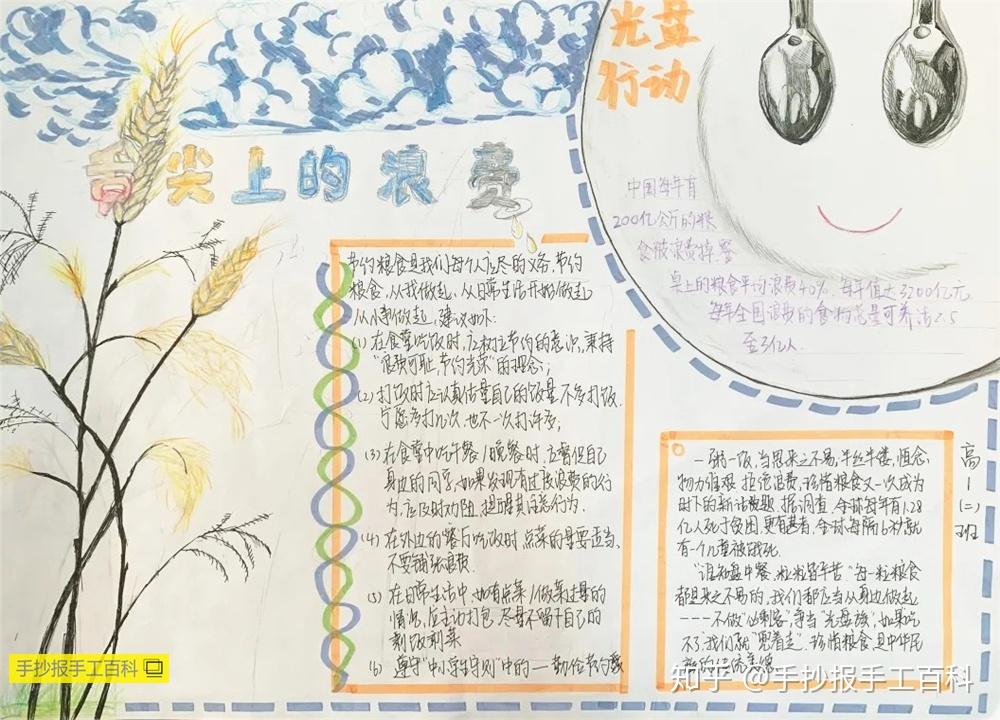 光盘
行动
舌尖上的浪费
中国每年有
200亿公斤的粮
食被浪费掉,餐
桌上的粮食平均浪费40%,每年值达3200亿元
每年全国浪费的食物总量可养活2.5
至3亿人.
节约粮食是我们每个人应尽的义务,节约
粮食,从我做起、从日常生活开始做起
从小事做起,建议如下:
(1)在食堂吃饭时,应树立节约的意识,秉持
“浪费可耻,节约光荣”的理念;
(2)打饭时应认真估量自己的饭量,不多打饭.
宁愿多打几次,也不一次打许多;
(3)在食堂中吃午餐/晚餐时,应督促自己
身边的同学,如果发现有过度浪费的行
为,应及时劝阻,提醒其注意行为.
(4)在外边的餐厅吃饭时,点菜的量要适当、
不要铺张浪费.
(5)在日常生活中,如有点菜/做菜过量的
情况,应主动打包,尽量不留下自己的
剩饭剩菜
(6)遵守“中小学生守则”中的——勤俭节约
一粥一饭,当思来之不易,半丝半缕,恒念
物力维艰.拒绝浪费,珍惜粮食又一次成为
时下的新话题.据调查,全球每年有1.28
亿人死于贫困.更有甚者,全球每隔6秒就
有一个儿童被饿死.
“谁知盘中餐,粒粒皆辛苦”每一粒粮食
都是来之不易的,我们都应当从身边做起
----不做“必剩客”,争当“光盘族”,如果吃
不了,我们就“兜着走”.珍惜粮食是中华民
族的传统美德.
高一(二)班
手抄报手工百科
知乎 @手抄报手工百科